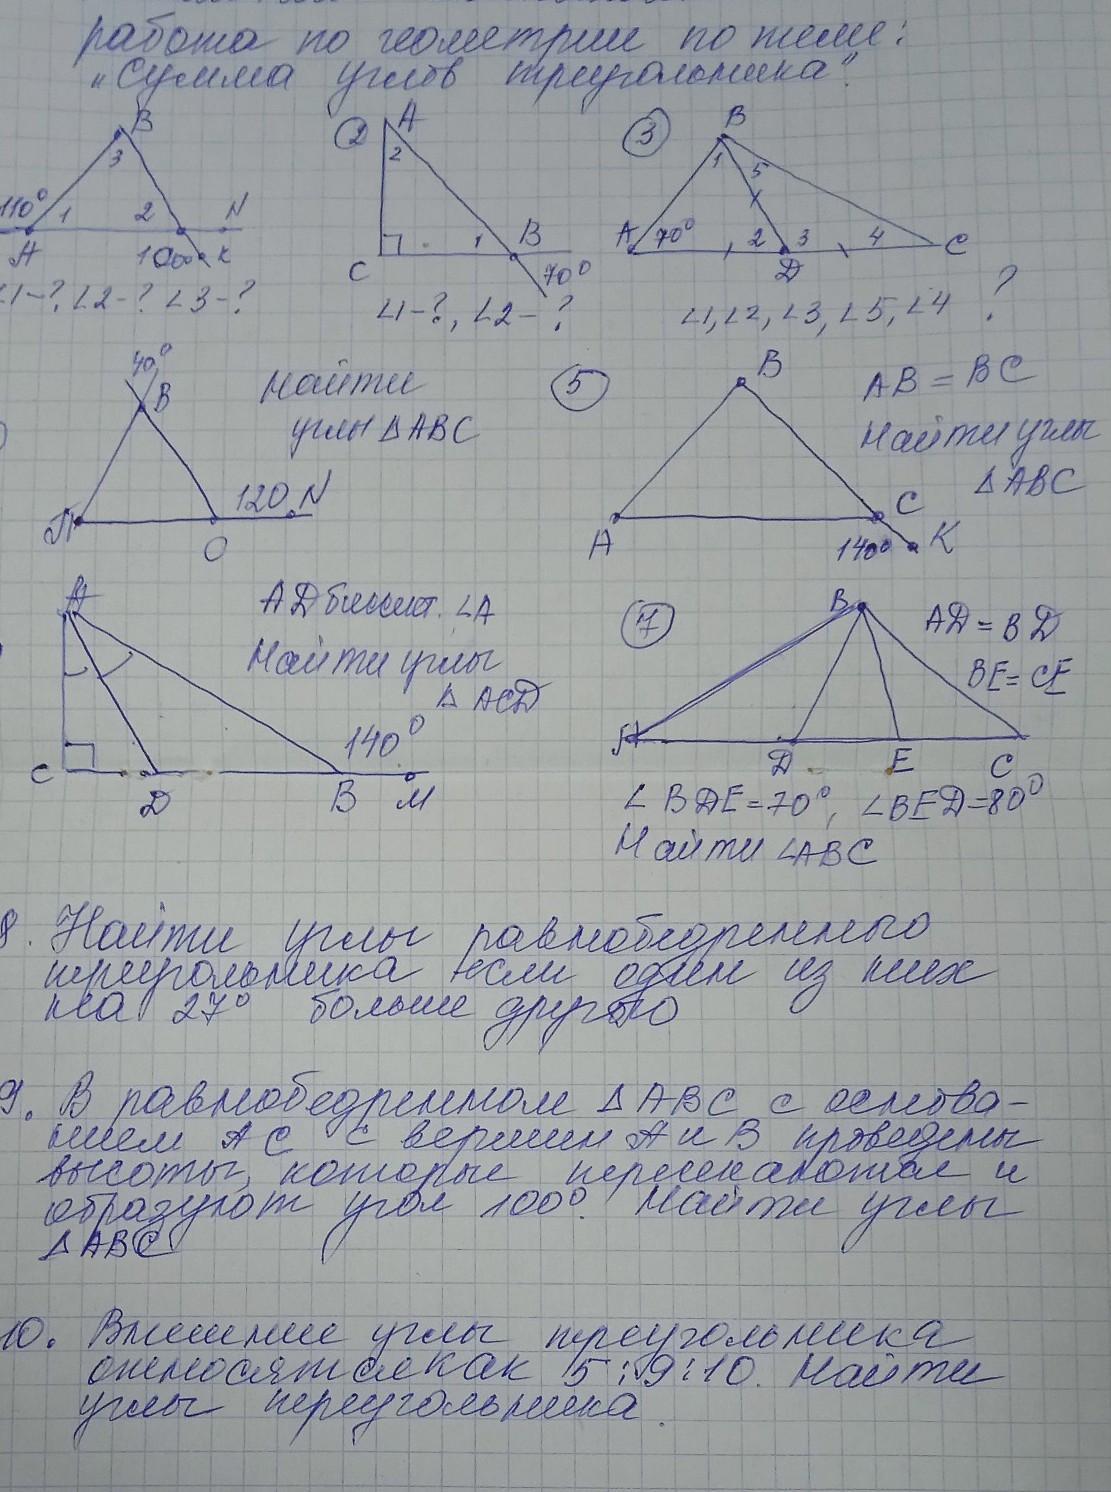 работа по геометрии по теме:
„Сумма углов треугольника"
B
3
110°
1
2
N
A
100°
K
∠1-?, ∠2-? ∠3-?
2
A
2
1
B
C
70°
∠1-?, ∠2-?
3
B
1
5
A
70°
2
3
4
C
D
∠1, ∠2, ∠3, ∠5, ∠4 ?
40°
B
Найти
углы ΔABC
120
N
A
C
5
B
AB = BC
Найти углы
ΔABC
A
C
140°
K
A
AD биссект. ∠A
Найти углы
Δ ACD
140°
C
D
B
M
7
B
AD = BD
BE = CE
A
D
E
C
∠BDE=70°, ∠BED=80°
Найти ∠ABC
8. Найти углы равнобедренного
треугольника если один из них
на 27° больше другого
9. В равнобедренном ΔABC с основа-
нием AC с вершин A и B проведены
высоты, которые пересекаются и
образуют угол 100°. Найти углы
ΔABC
10. Внешние углы треугольника
относятся как 5:9:10. Найти
углы треугольника.